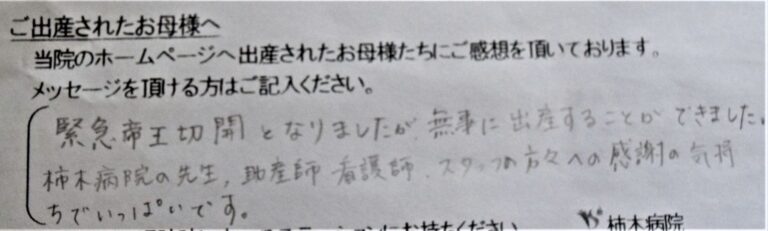 ご出産されたお母様へ
当院のホームページへ出産されたお母様たちにご感想を頂いております。
メッセージを頂ける方はご記入ください。
緊急帝王切開となりましたが、無事に出産することができました。
柿木病院の先生,助産師 看護師、スタッフの方々への感謝の気持
ちでいっぱいです。
ーションにお持ちください 柿木病院